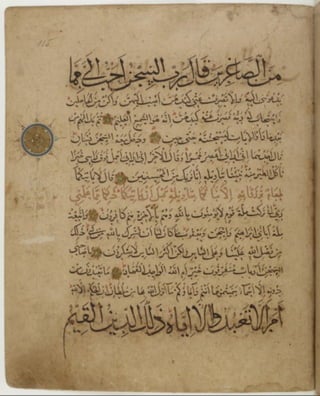 115
من الصاغرين قال رب السجن احب الي مما
يدعونني اليه والا تصرف عني كيدهن اصب اليهن واكن من الجاهلين
فاستجاب له ربه فصرف عنه كيدهن انه هو السميع العليم ثم بدا لهم من
بعد ما راوا الايات ليسجننه حتى حين ودخل معه السجن فتيان
قال احدهما اني اراني اعصر خمرا وقال الاخر اني اراني احمل فوق راسي خبزا
تاكل الطير منه نبئنا بتاويله انا نراك من المحسنين قال لا ياتيكما
طعام ترزقانه الا نباتكما بتاويله قبل ان ياتيكما ذلكما مما علمني
ربي اني تركت ملة قوم لا يؤمنون بالله وهم بالاخرة هم كافرون واتبعت
ملة اباءي ابرهيم واسحق ويعقوب ما كان لنا ان نشرك بالله من شيء ذلك
من فضل الله علينا وعلى الناس ولكن اكثر الناس لا يشكرون يا صاحبي
السجن اارباب متفرقون خير ام الله الواحد القهار ما تعبدون من
دونه الا اسماء سميتموها انتم واباؤكم ما انزل الله بها من سلطان ان الحكم الا لله
امر الا تعبدوا الا اياه ذلك الدين القيم